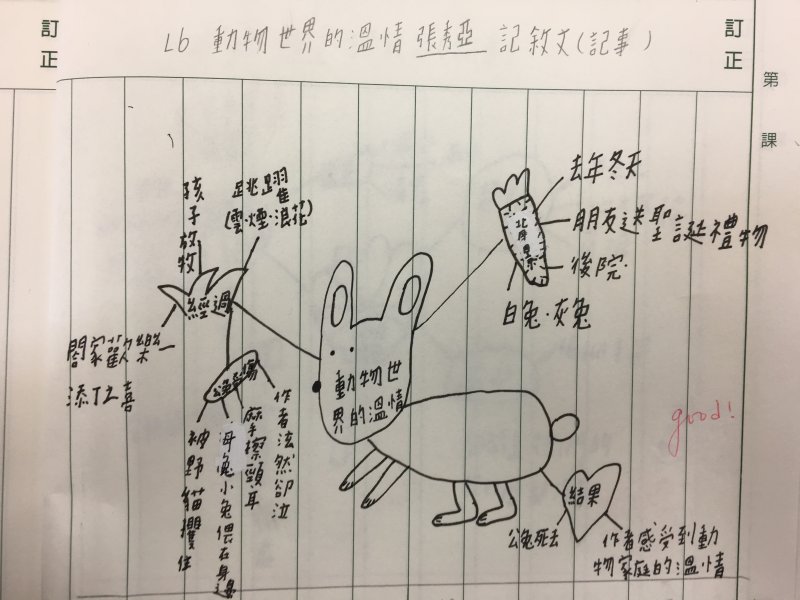 訂正
訂正
第 課
L6 動物世界的溫情 張秀亞 記敘文(記事)
去年冬天
朋友送聖誕禮物
後院
白兔．灰兔
背景
孩子放牧
跳躍
(雲．煙．浪花)
經過
闔家歡樂
添丁之喜
公兔受傷
被野貓攫住
母兔小兔偎在身邊
摩擦頸耳
作者泫然卻泣
動物世
界的溫情
good!
結果
公兔死去
作者感受到動
物家庭的溫情